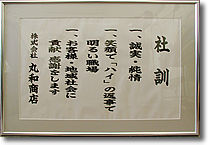 社訓
一、誠実・純情
一、笑顔で「ハイ」の返事で
明るい職場
一、お客様・地域社会に
貢献 感謝をします
株式会社 丸和商店